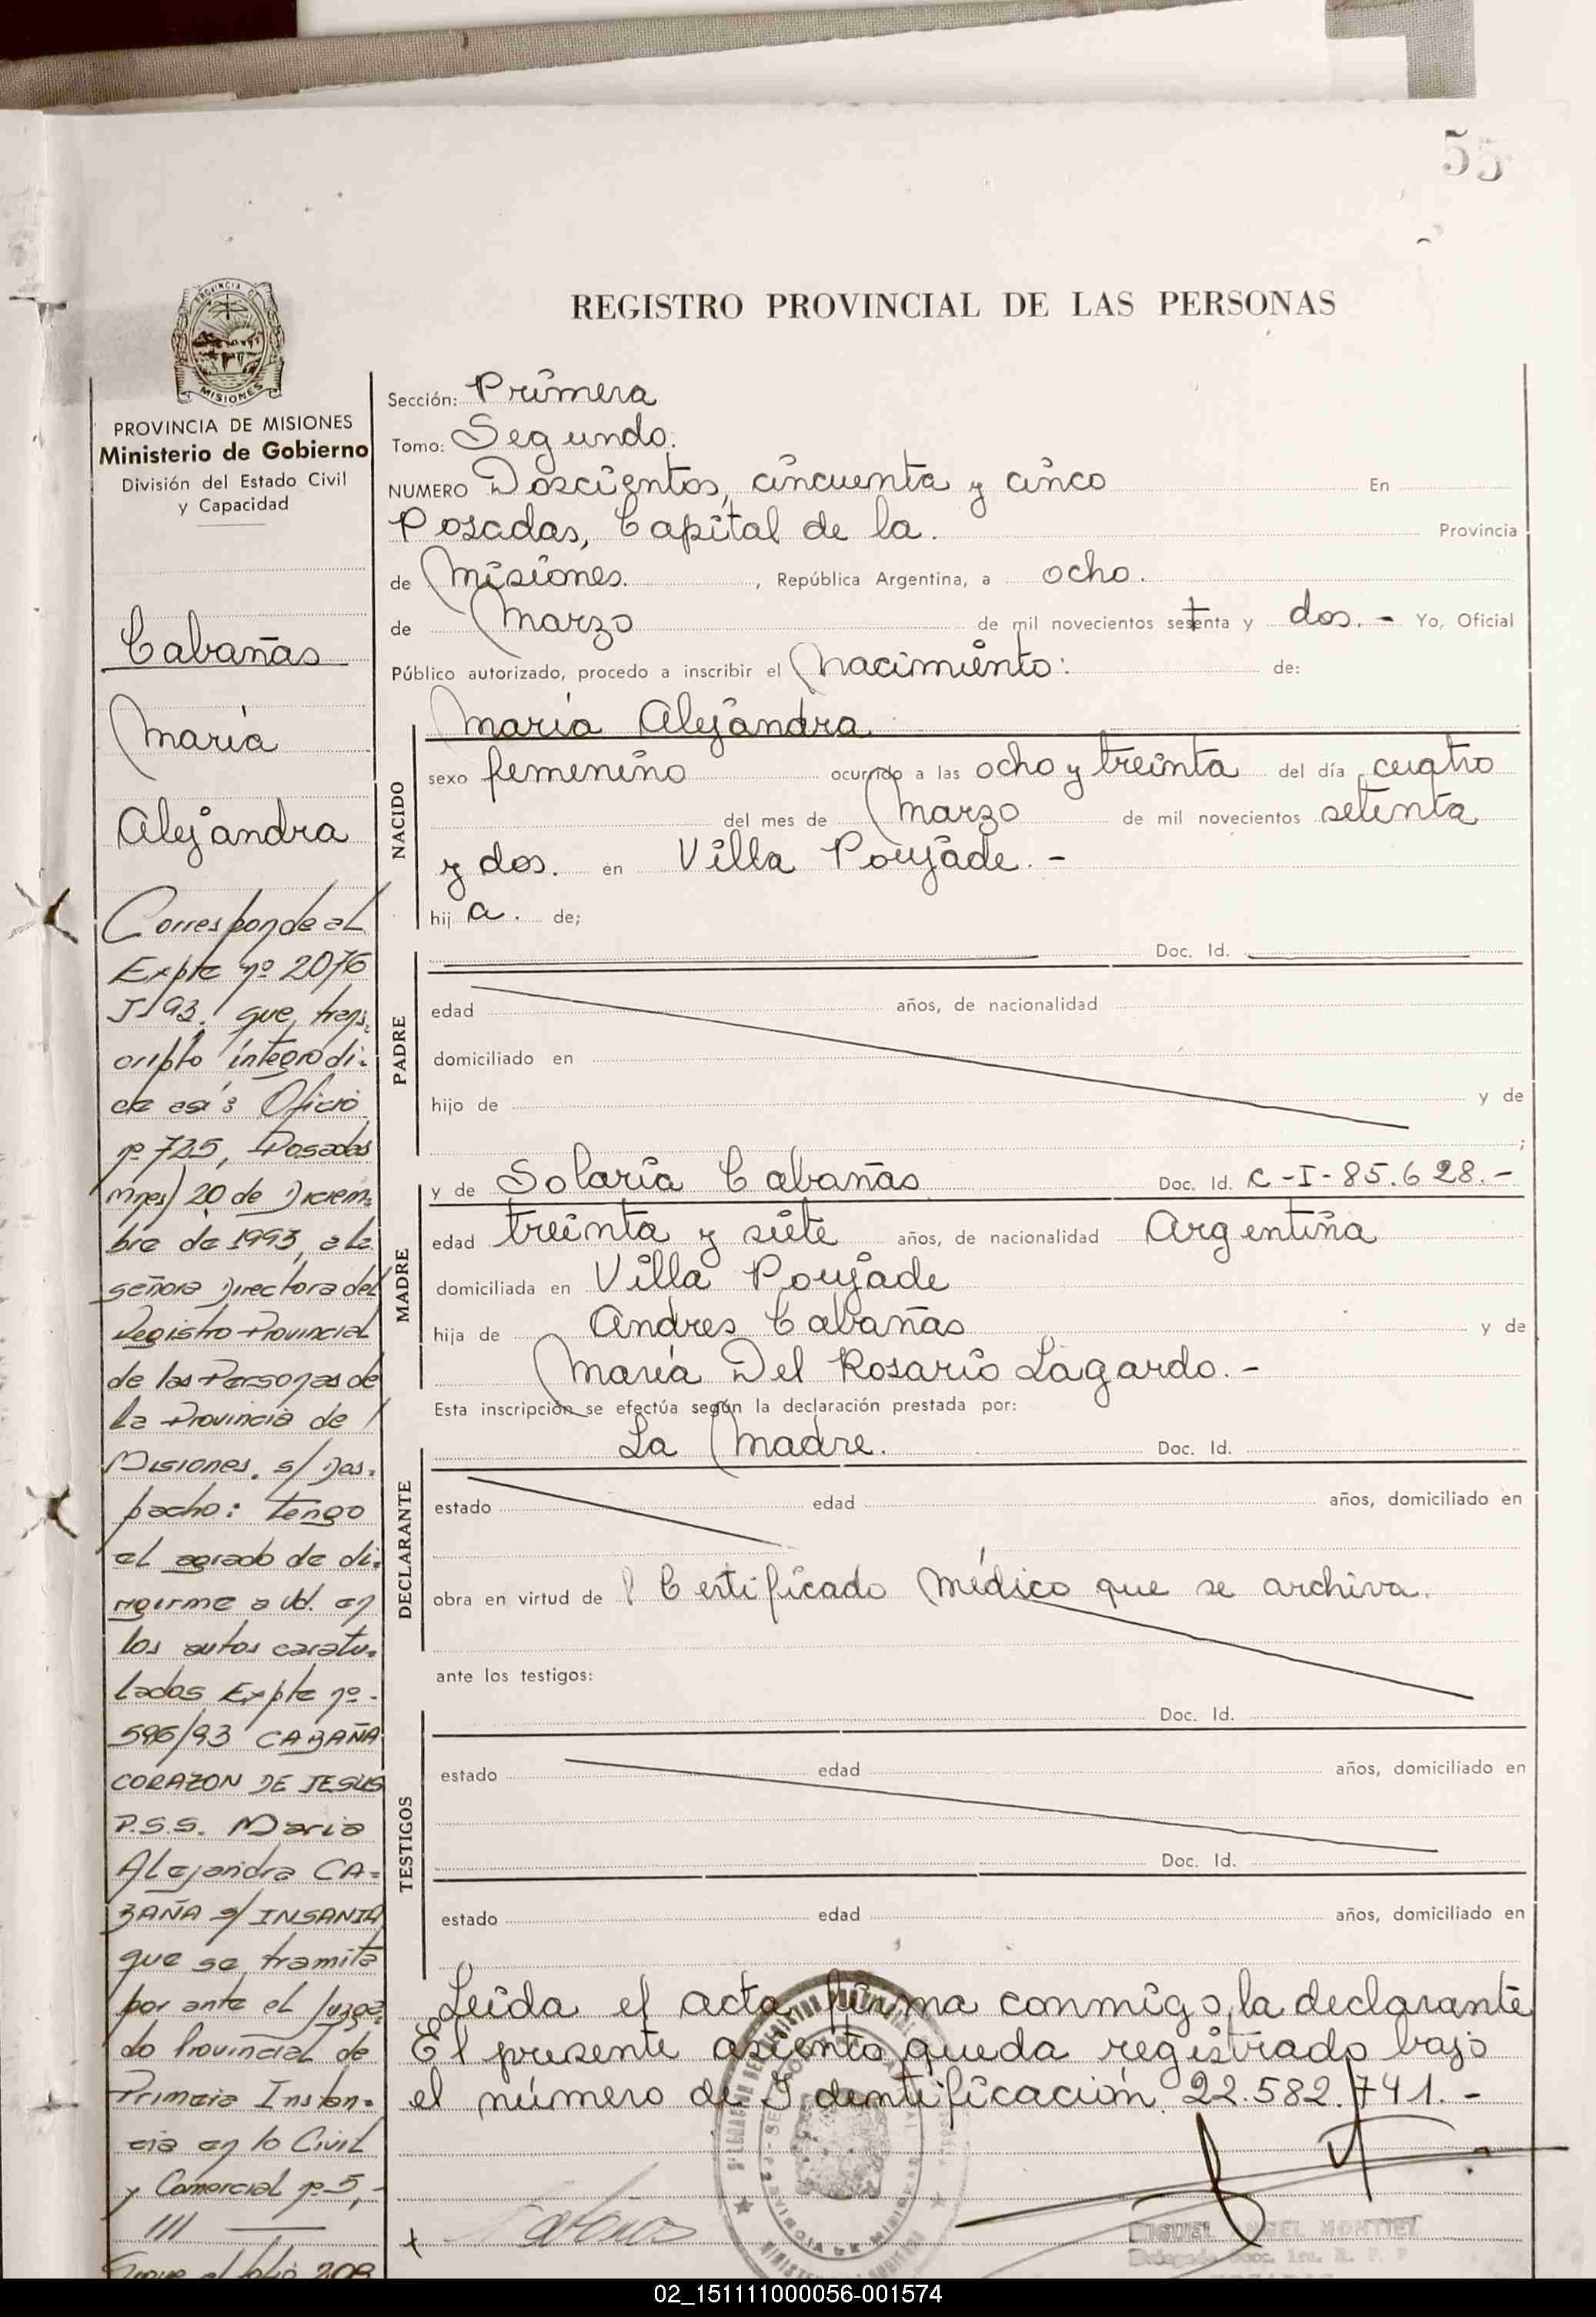 55
REGISTRO PROVINCIAL DE LAS PERSONAS
PROVINCIA DE
MISIONES
PROVINCIA DE MISIONES
Ministerio de Gobierno
División del Estado Civil
y Capacidad
Cabañas
María
Alejandra
Corresponde al
Expte nº 2076
J/93. que trans-
cripto íntegro di-
ce así: Oficio
nº 725, Posadas
Mnes) 20 de Diciem-
bre de 1993, a la
señora Directora del
Registro Provincial
de las Personas de
la Provincia de
Misiones. s/ Des-
pacho: Tengo
el agrado de di-
rigirme a Ud. en
los autos caratu-
lados Expte nº-
596/93 CABAÑA
CORAZON DE JESUS
P.S.S. Maria
Alejandra CA-
BAÑA s/ INSANIA
que se tramita
por ante el Juzga-
do Provincial de
Primera Instan-
cia en lo Civil
y Comercial nº 5,-
///
Sigue el folio 208
Sección: Primera
Tomo: Segundo.
NUMERO Doscientos, cincuenta y cinco En
Posadas, Capital de la. Provincia
de Misiones. , República Argentina, a ocho.
de Marzo de mil novecientos setenta y dos. - Yo, Oficial
Público autorizado, procedo a inscribir el Nacimiento: de:
NACIDO
María Alejandra
sexo femenino ocurrido a las ocho y treinta del día cuatro
del mes de Marzo de mil novecientos setenta
y dos. en Villa Poujade. -
hij a. de;
PADRE
Doc. Id.
edad años, de nacionalidad
domiciliado en
hijo de y de
;
MADRE
y de Solaria Cabañas Doc. Id. C-I-85.628.-
edad treinta y siete años, de nacionalidad Argentina
domiciliada en Villa Poujade
hija de Andres Cabañas y de
María Del Rosario Lagardo. -
Esta inscripción se efectúa según la declaración prestada por:
DECLARANTE
La Madre. Doc. Id.
estado edad años, domiciliado en
obra en virtud de Certificado Médico que se archiva.
ante los testigos:
TESTIGOS
Doc. Id.
estado edad años, domiciliado en
Doc. Id.
estado edad años, domiciliado en
Leida el acta firma conmigo, la declarante
El presente asiento queda registrado bajo
el número de Identificación 22.582.741.-
MIGUEL ANGEL MONTIEL
02_151111000056-001574